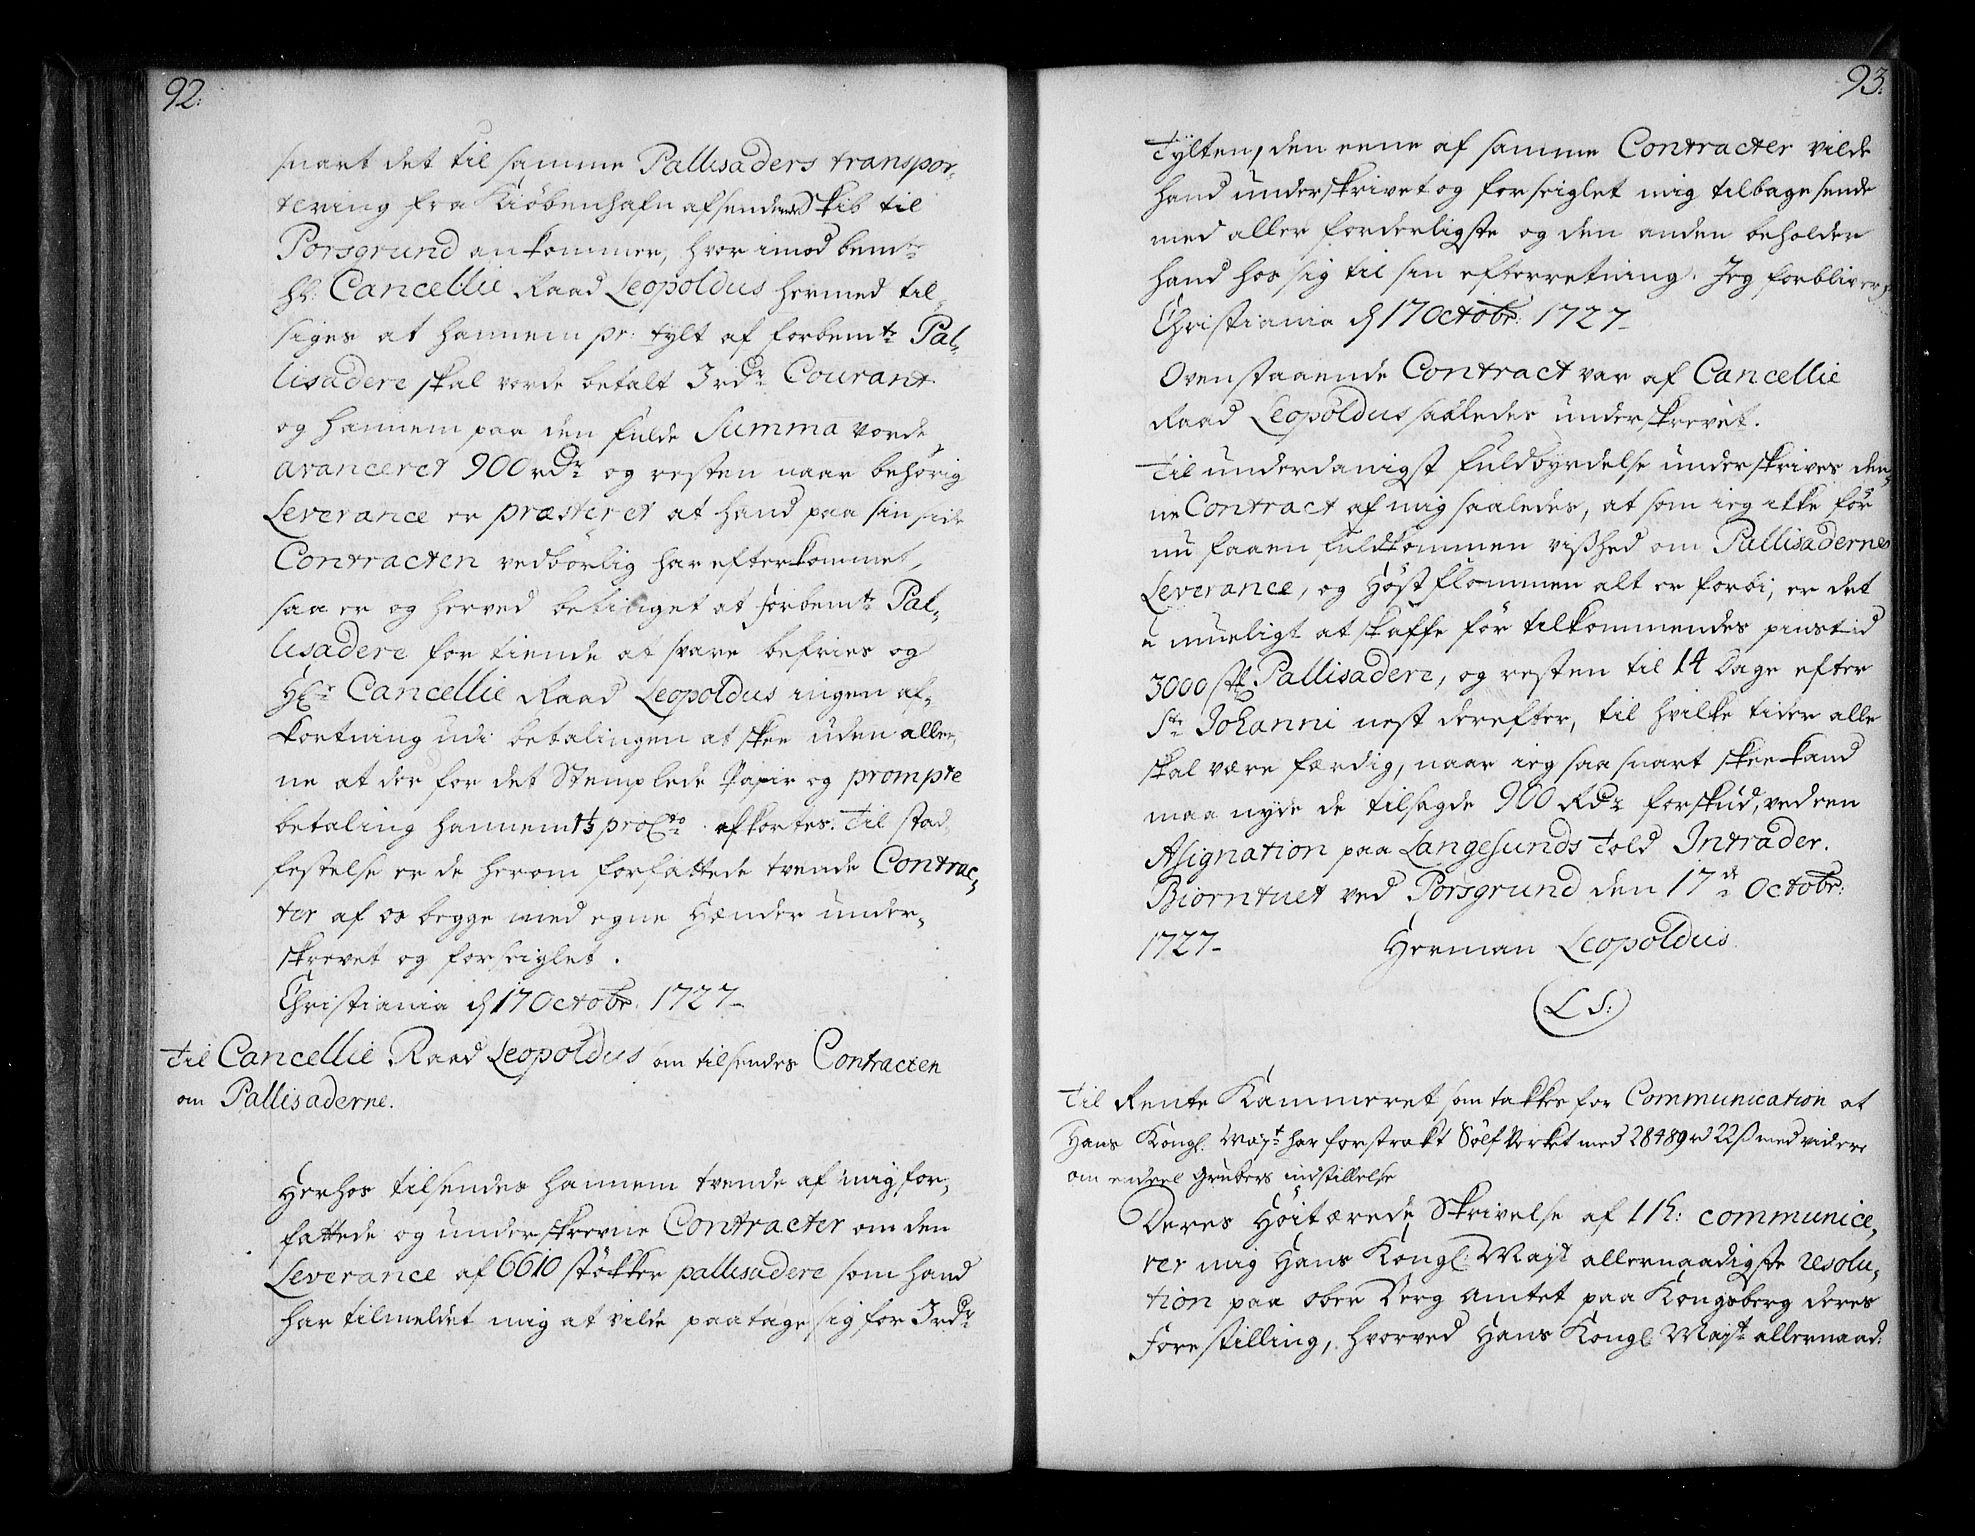 92.
snart det til samme Pallisaders transpor-
tering fra Kiøbenhafn afsendende Skib til
Porsgrund ankommer, hvorimod bemte
Hr: Cancellie Raad Leopoldus hermed til-
siges at hannem pr: tylt af forbemte Pal-
lisadere skal vorde betalt 3 rdr Courant
og hannem paa den fulde Summa vorde
avanceret 900 rdr og resten naar behörig
Leverance er præsteret at hand paa sin side
Contracten vedbörlig har efterkommet,
saa er og herved betinget at forbemte Pal-
lisadere for tiende at svare befries og
Hr Cancellie Raad Leopoldus ingen af-
kortning udi betalingen at skee uden alle-
ne at der for det Stemplede Papir og prompte
betaling hannem 1⅓ proCto afkortes. Til stad-
festelse er de herom forfattede tvende Contrac-
ter af os begge med egne Hænder under-
skrevet og forseiglet.
Christiania d 17 Octobr. 1727-
Til Cancellie Raad Leopoldus om tilsendes Contracten
om Pallisaderne.
Herhos tilsendes hannem tvende af mig for-
fattede og underskrevne Contracter om den
Leverance af 6610 støkker pallisadere som hand
har tilmeldet mig at vilde paatage sig for 3 rdr
93.
Tylten, den eene af samme Contracter vilde
hand underskrivet og forseiglet mig tilbage sende
med aller forderligste og den anden beholder
hand hos sig til sin efterretning. Jeg forbliver
Christiania d 17 Octobr: 1727-
Ovenstaaende Contract var af Cancellie
Raad Leopoldus saaledes underskrevet.
Til underdanigst fuldbyrdelse underskrives den-
ne Contract af mig saaledes, at som ieg ikke för
nu faaen fuldkommen vished om Pallisadernes
Leverance, og Höstflommen alt er forbi, er det
u mueligt at skaffe för tilkommendes pinstid
3000 stk Pallisadere, og resten til 14 Dage efter
Ste Johanni nest derefter, til hvilke tider alle
skal være færdig, naar ieg saa snart skee kand
maa nyde de tilsagde 900 Rdr forskud, ved een
Asignation paa Langesunds Told Intrader.
Biorntvet ved Porsgrund den 17de Octobr:
1727- Herman Leopoldus
(L S:)
Til Rente Kammeret som takkes for Communication at
Hans Kongl: Mayt har forstrakt Sölf Verket med 28489 rd 22 ß med videre
om endeel Grubers indstillelse
Deres Höitærede Skrivelse af 11h: communice-
rer mig Hans Kongl: Mayt allernaadigste resolu-
tion paa ober Berg Amtet paa Kongsberg deres
Forestilling, hvorved Hans Kongl Mayt allernaad: